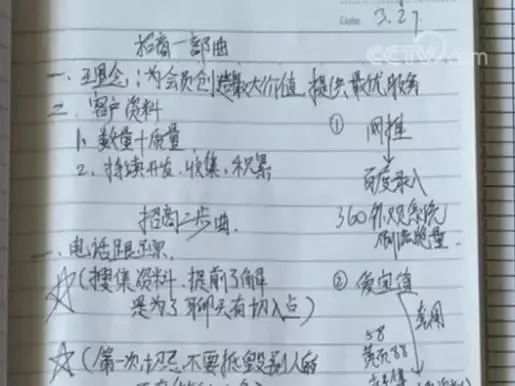 3.27
CCTV.com
招商一部曲
一、理念：为会员创造最大价值 提供最优服务
二、客户资料
1、数量+质量
2、持续开发、收集、积累
① 网推
百度录入
360外观系统
招商二步曲
一、电话跟踪
☆(搜集资料、提前了解
是为了聊天有切入点)
②
套用
58
☆(第一次切忌不要诋毁别人的